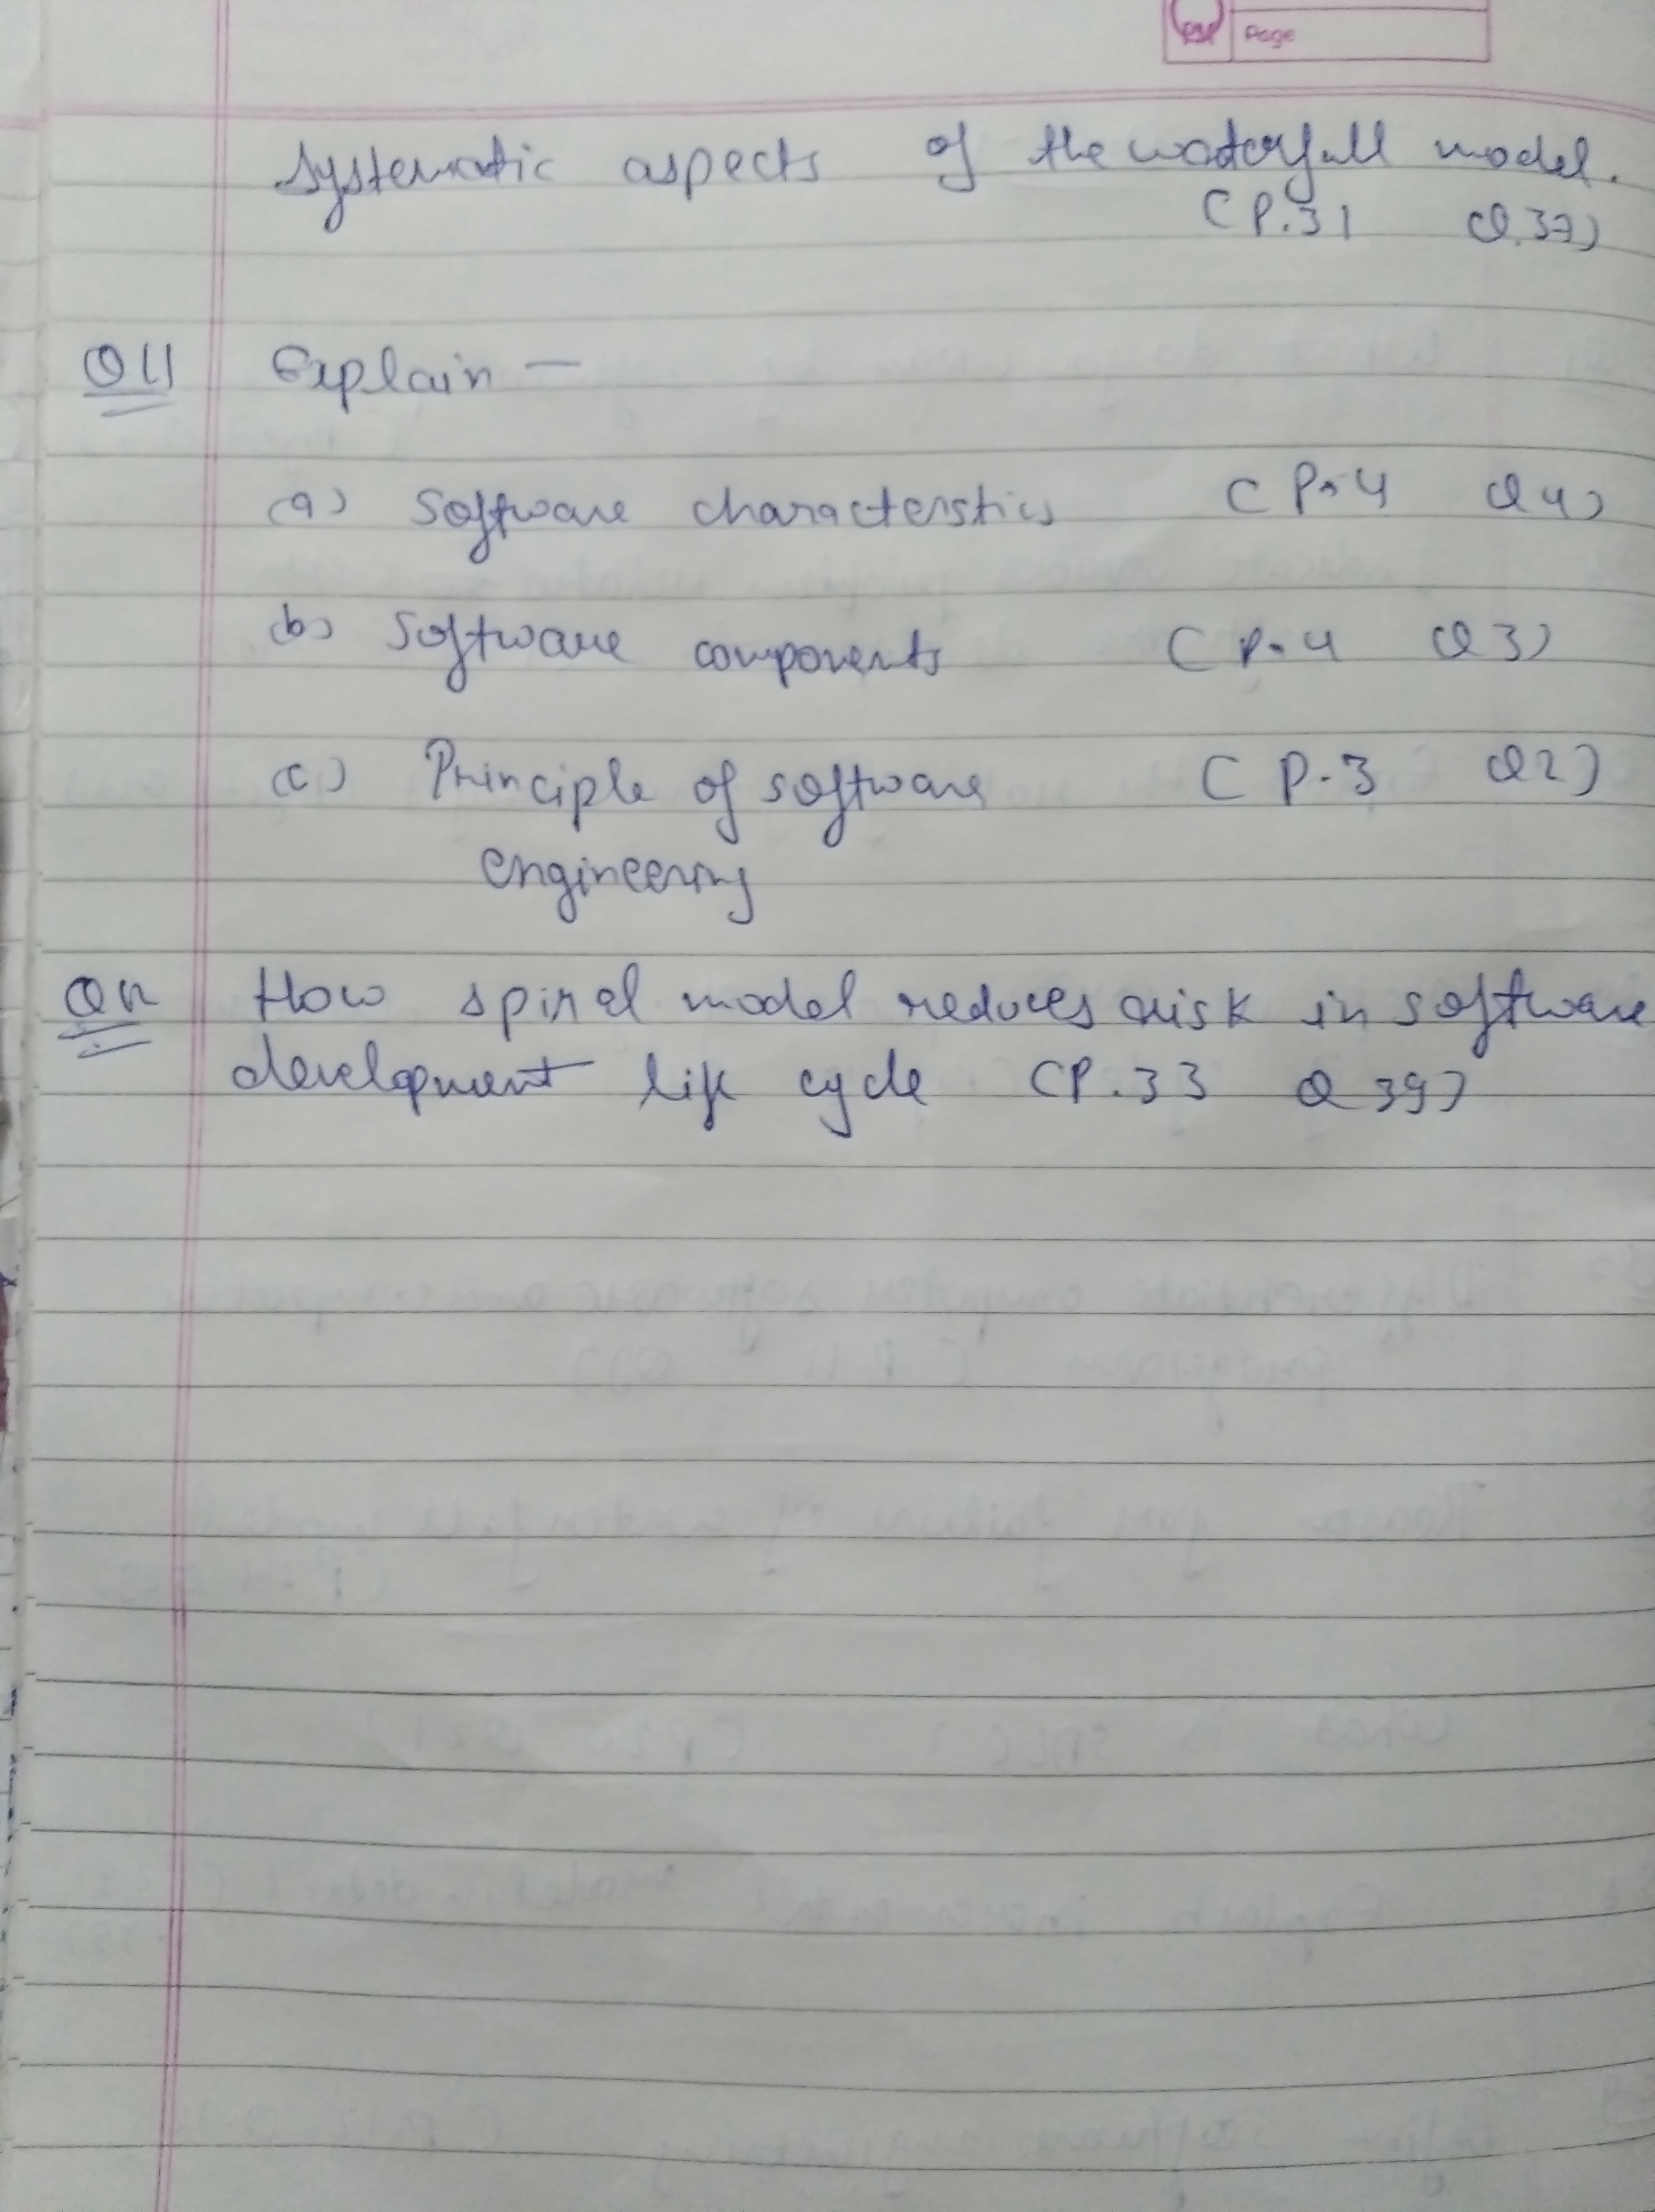 Page
Systematic aspects of the waterfall model.
(P.31 Q.37)
Q11 Explain —
(a) Software characterstics (P.4 Q4)
(b) Software components (P.4 Q3)
(c) Principle of software (P.3 Q2)
engineering
Q12 How spiral model reduces risk in software
development life cycle (P.33 Q39)